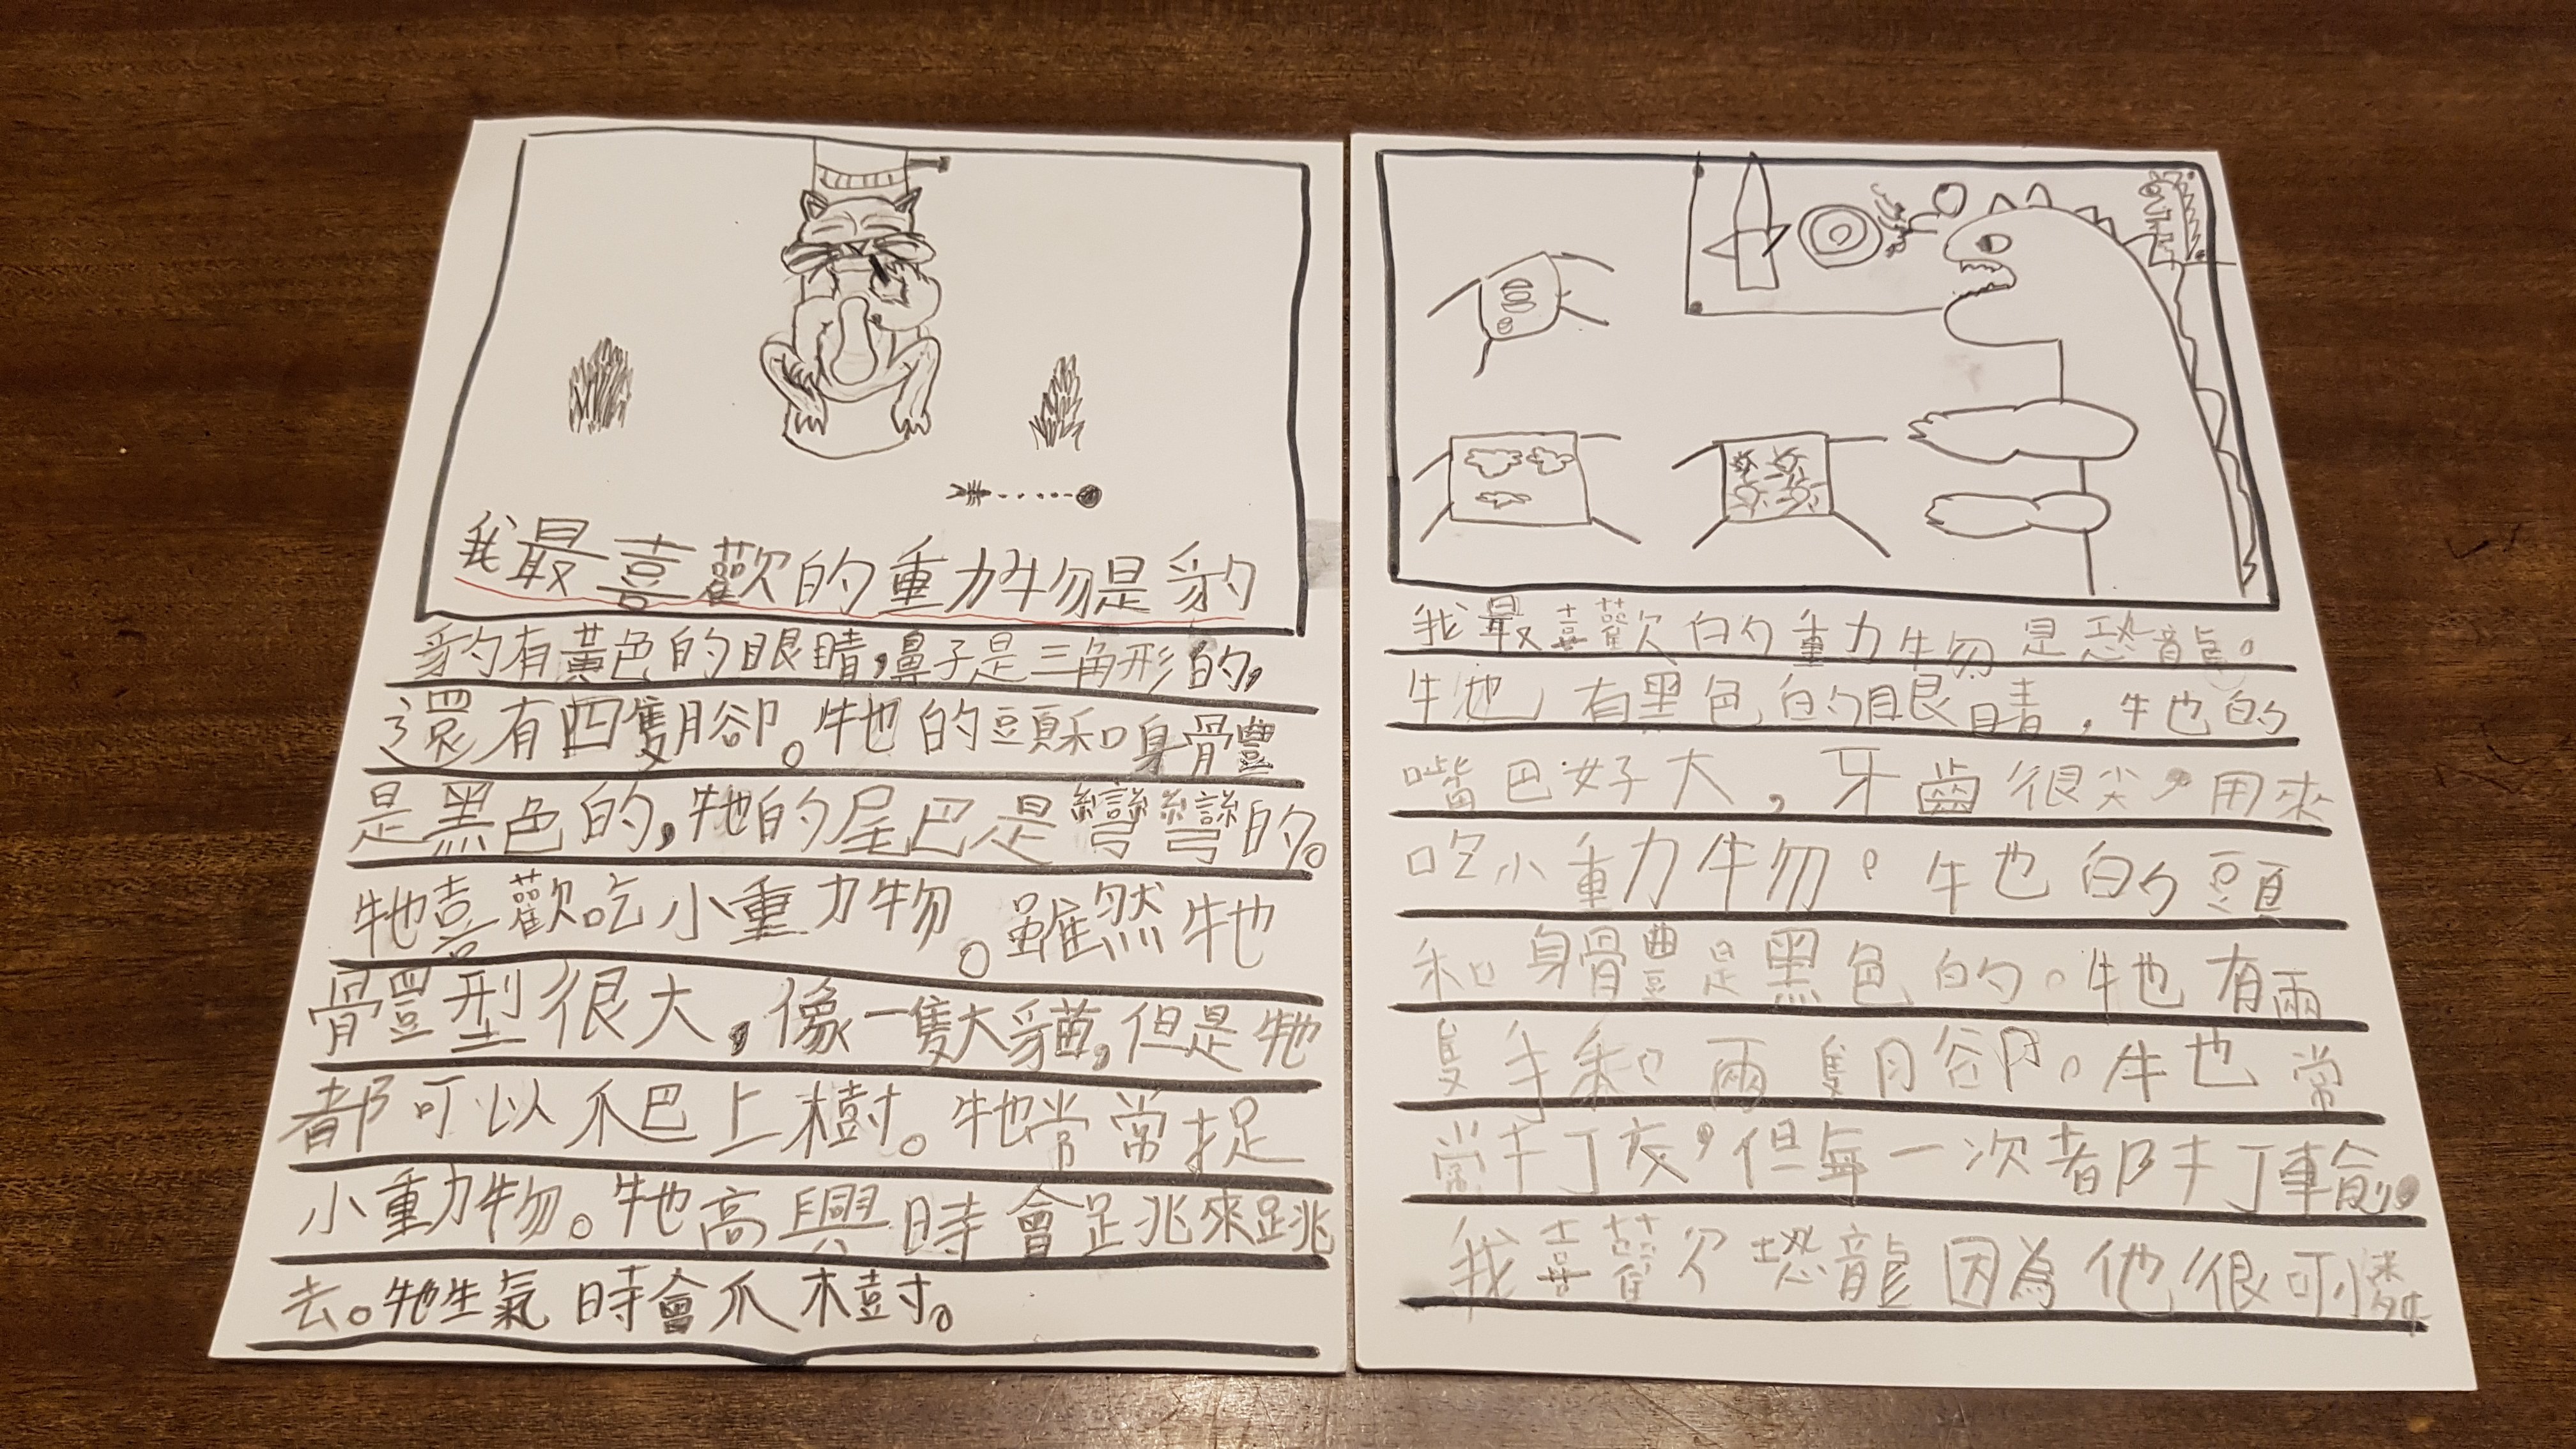 我最喜歡的動物是豹
豹有黃色的眼睛,鼻子是三角形的,
還有四隻腳。牠的頭和身體
是黑色的,牠的尾巴是彎彎的。
牠喜歡吃小動物。雖然牠
體型很大,像一隻大貓,但是牠
都可以爬上樹。牠常常捉
小動物。牠高興時會跳來跳
去。牠生氣時會爪樹。
我最喜歡的動物是恐龍。
牠有黑色的眼睛,牠的
嘴巴好大,牙齒很尖,用來
吃小動物。牠的頭
和身體是黑色的。牠有兩
隻手和兩隻腳。牠常
常打交,但每一次都打輸。
我喜歡恐龍因為他很可憐